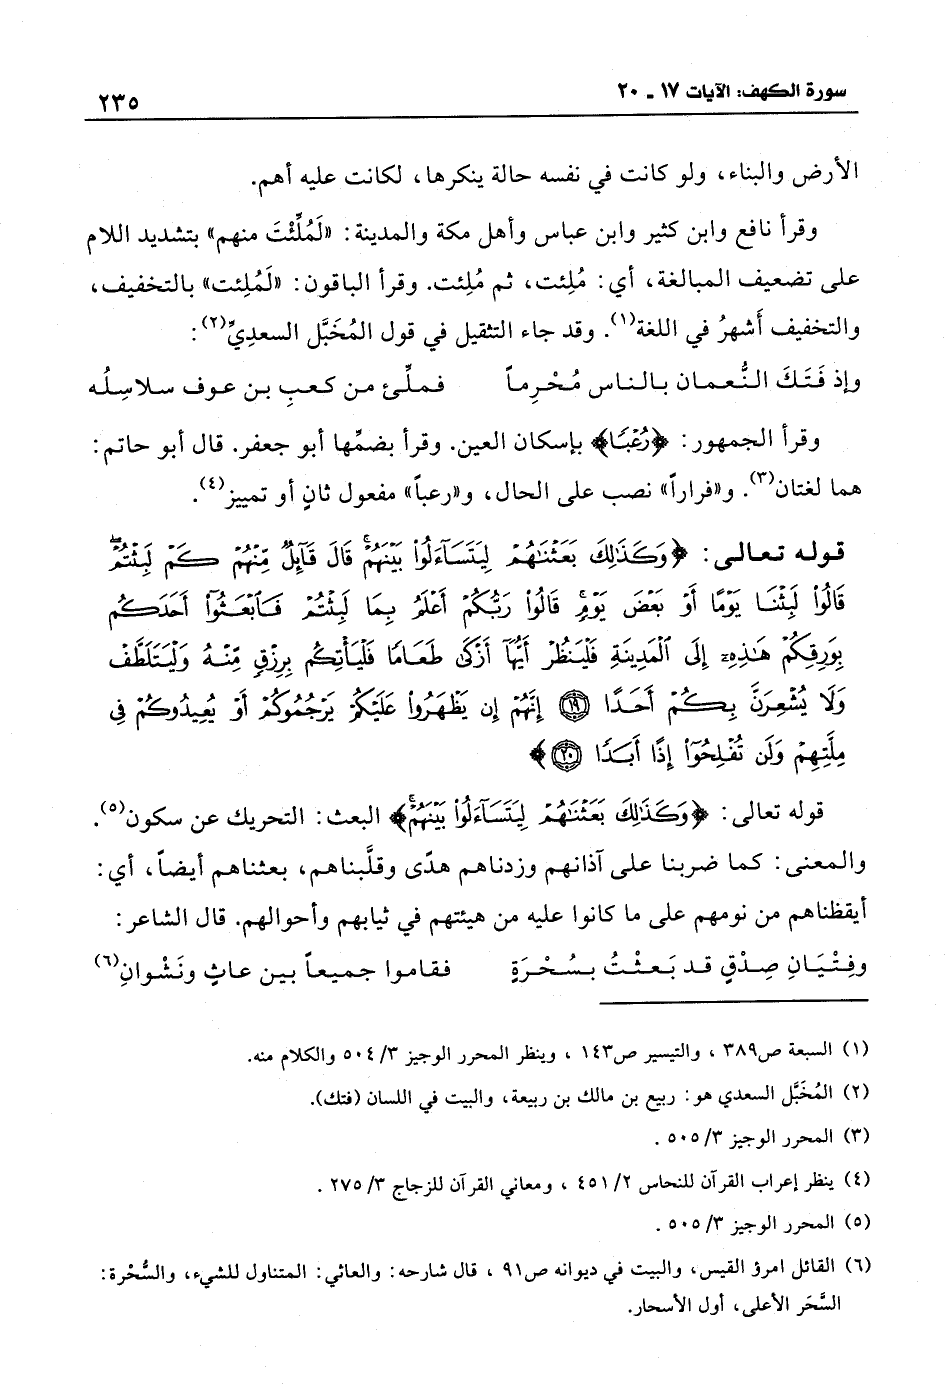 سورة الكهف: الآيات ١٧ ـ ٢٠
٢٣٥
الأرض والبناء، ولو كانت في نفسه حالة ينكرها، لكانت عليه أهم.
وقرأ نافع وابن كثير وابن عباس وأهل مكة والمدينة: «لَمُلِّئْتَ منهم» بتشديد اللام
على تضعيف المبالغة، أي: مُلِئت، ثم مُلِئت. وقرأ الباقون: «لَمُلِئت» بالتخفيف،
والتخفيف أَشهرُ في اللغة(١). وقد جاء التثقيل في قول المُخَبَّل السعديِّ(٢):
وإذ فَتَكَ النُّعمان بالناس مُحْرِماً فملِّئ من كعبِ بن عوف سلاسلُه
وقرأ الجمهور: ﴿رُعْبًا﴾ بإسكان العين. وقرأ بضمِّها أبو جعفر. قال أبو حاتم:
هما لغتان(٣). و«فراراً» نصب على الحال، و«رعباً» مفعول ثانٍ أو تمييز(٤).
قوله تعالى: ﴿وَكَذَٰلِكَ بَعَثْنَٰهُمْ لِيَتَسَآءَلُوا۟ بَيْنَهُمْ ۚ قَالَ قَآئِلٌ مِّنْهُمْ كَمْ لَبِثْتُمْ ۖ
قَالُوا۟ لَبِثْنَا يَوْمًا أَوْ بَعْضَ يَوْمٍ ۚ قَالُوا۟ رَبُّكُمْ أَعْلَمُ بِمَا لَبِثْتُمْ فَٱبْعَثُوٓا۟ أَحَدَكُم
بِوَرِقِكُمْ هَٰذِهِۦٓ إِلَى ٱلْمَدِينَةِ فَلْيَنظُرْ أَيُّهَآ أَزْكَىٰ طَعَامًا فَلْيَأْتِكُم بِرِزْقٍ مِّنْهُ وَلْيَتَلَطَّفْ
وَلَا يُشْعِرَنَّ بِكُمْ أَحَدًا ۝١٩ إِنَّهُمْ إِن يَظْهَرُوا۟ عَلَيْكُمْ يَرْجُمُوكُمْ أَوْ يُعِيدُوكُمْ فِى
مِلَّتِهِمْ وَلَن تُفْلِحُوٓا۟ إِذًا أَبَدًا ۝٢٠﴾
قوله تعالى: ﴿وَكَذَٰلِكَ بَعَثْنَٰهُمْ لِيَتَسَآءَلُوا۟ بَيْنَهُمْ ۚ﴾ البعث: التحريك عن سكون(٥).
والمعنى: كما ضربنا على آذانهم وزدناهم هدًى وقلَّبناهم، بعثناهم أيضاً، أي:
أيقظناهم من نومهم على ما كانوا عليه من هيئتهم في ثيابهم وأحوالهم. قال الشاعر:
وفِتْيَانِ صِدْقٍ قد بَعثْتُ بسُحْرَةٍ فقاموا جميعاً بين عاثٍ ونَشْوانِ(٦)
(١) السبعة ص٣٨٩ ، والتيسير ص١٤٣ ، وينظر المحرر الوجيز ٥٠٤/٣ والكلام منه.
(٢) المُخَبَّل السعدي هو: ربيع بن مالك بن ربيعة، والبيت في اللسان (فتك).
(٣) المحرر الوجيز ٥٠٥/٣ .
(٤) ينظر إعراب القرآن للنحاس ٤٥١/٢ ، ومعاني القرآن للزجاج ٢٧٥/٣ .
(٥) المحرر الوجيز ٥٠٥/٣ .
(٦) القائل امرؤ القيس، والبيت في ديوانه ص٩١ ، قال شارحه: والعاثي: المتناول للشيء، والسُّحْرة:
السَّحَر الأعلى، أول الأسحار.